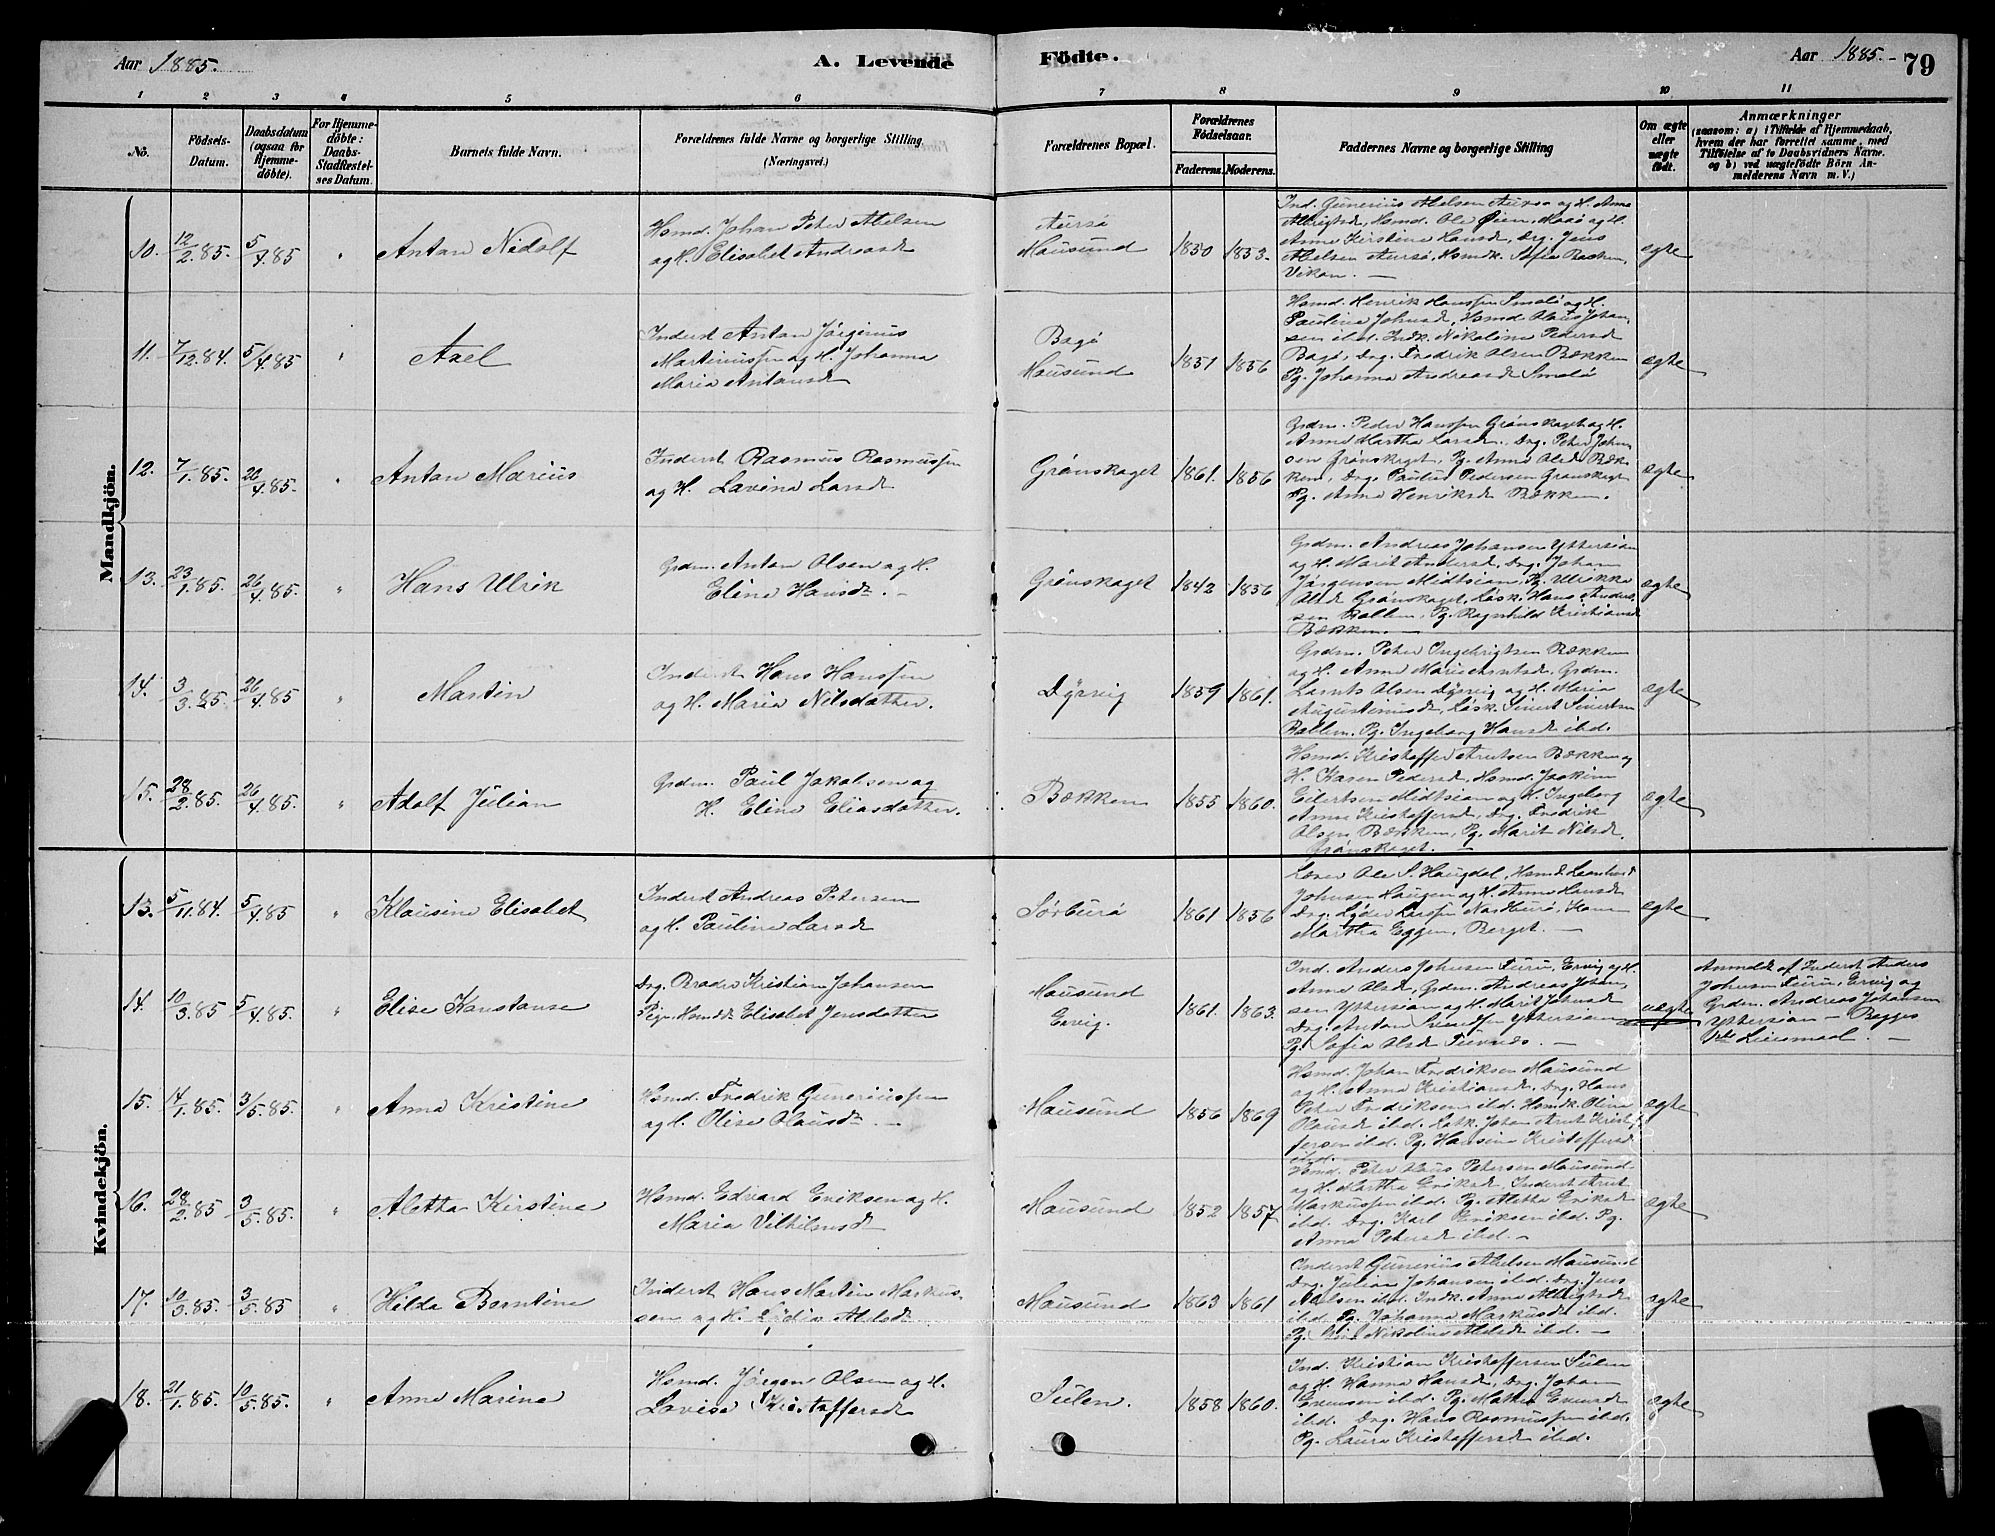 Aar 1885.
A. Levende
Födte.
Aar 1885.
79
1
2
3
4
5
6
7
8
9
10
11
No.
Födsels-
Datum.
Daabsdatum
(ogsaa for
Hjemme-
döbte).
For Hjemme-
döbte:
Daabs-
Stadfæstel-
ses Datum.
Barnets fulde Navn.
Forældrenes fulde Navne og borgerlige Stilling
(Næringsvei.)
Forældrenes Bopæl.
Forældrenes
Födselsaar.
Faderens.
Moderens.
Faddernes Navne og borgerlige Stilling
Om ægte
eller
uægte
födt.
Anmærkninger
(saasom: a) i Tilfælde af Hjemmedaab,
hvem der har forrettet samme, med
Tilföielse af to Daabsvidners Navne.
og b) ved uægtefödte Börn An-
melderens Navn m. V.)
Mandkjön.
10. 12/2.85. 5/4.85 "
Antan Nidolf
Hsmd. Johan Peter Abelsen
og H. Elisabet Andreasd
Mausund
1850 1853.
Anne Kirstine Hansd, Drg. Jens
Vikan. —
egte
11. 7/12.84. 5/4.85 "
Axel
Inderst Antan Jörgenus
Martinussen og H. Johanna
Maria Antansd
Bagö
Mausund
1851 1856
Hsmd. Henrik Hanssen Smolö og H.
Paulina Johnsd, Hsmd Olaus Johan-
sen ibd. Indk. Nikolina Pedersd
Bagö, Drg. Fredrik Olsen Bækken
Pg. Johanna Andreasd Smolö
ægte
12. 7/1.85. 26/4.85. "
Antan Marius
Inderst Rasmus Rasmussen
og H. Lavina Larsd
Grönskaget
1861. 1856
Grdm. Peder Hanssen Grönskaget og H.
Anne Martha Larsd., Drg. Peter Johan
sen Grönskaget, Pg. Anne Olsd Bæk-
ken, Drg. Paulus Pedersen Grönskaget
Pg. Anne Henriksd Bækken.
ægte
13. 23/1.85. 26/4.85. "
Hans Ulrik
Grdm. Antan Olsen og H.
Eline Hansd. —
Grönskaget
1842 1856
Grdm. Andreas Johansen Yttersian
og H. Marit Andersd, Drg. Johan
Jörgensen Midtsian, Pg. Ulrikke
Olsd Grönskaget, Løsk. Hans Anders-
sen Rallem, Pg. Ragnhild Kristiansd
Bækken. —
ægte
14. 3/3.85. 26/4.85 "
Martin
Inderst Hans Hanssen
og H. Maria Nilsdatter.
Dyrvig
1859 1861.
Grdm. Peter Ingebrigtsen Bækken
og H. Anne Marie Arntsd, Grdm.
Lamits Olsen Dyrvig og H. Maria
Augustinusd, Løsk. Sivert Sivertsen
Rallem. Pg. Ingeborg Hansd ibd.
ægte
15. 28/2.85. 26/4.85. "
Adolf Julian
Grdm. Paul Jakobsen og
H. Eline Eliasdatter.
Bækken
1855 1860.
Hsmd. Kristoffer Arntsen Bækken og
H. Karen Pedersd, Hsmd. Joakim
Eilertsen Midtsian og H. Ingeborg
Anna Kristoffersd, Drg. Fredrik
Olsen Bækken, Pg. Marit Nilsd,
Grönskaget. —
ægte
Kvindekjön.
13. 5/11.84. 5/4.85 "
Klausine Elisabet
Inderst Andreas Petersen
og H. Pauline Larsd
Sörburö
1861 1856
Lærer Ole S. Haugdal, Hsmd. Leonhard
Johnsen Haugen og H. Anne Hansd
Martha Eggen, Berget. —
egte
14. 10/3.85 5/4.85. "
Elise Konstanse
Drg. Broder Kristian Johansen
Pige, Hsmdt. Elisabet Jensdatter
Mausund
Ervig.
1861. 1863.
Ind. Anders Johnsen Furu, Ervig og H.
Anne Olsd, Grdm. Andreas Johan-
sen Yttersian og H. Marit Johnsd
Drg. Antan Svendsen Yttersian
Pg. Sofie Olsd Tuvnes. —
uægte
Anmeldt af Inderst Anders
Johnsen Furu, Ervig og
Grdm. Andreas Johansen
Yttersian — Begges
Leiermaal. —
15. 14/1.85. 3/5.85. "
Anna Kristine
Hsmd. Fredrik Guneriussen
og H. Olise Olausd. —
Mausund
1856 1869
Hsmd. Johan Fredriksen Mausund
og H. Anna Kristiansd, Drg. Hans
Peter Fredriksen ibd. Hsmdk. Olina
Olausd ibd. Johan Arnt Kristof-
fersen ibd. Pg. Hansine Kristoffersd
ibd. —
ægte
16. 28/2.85 3/5.85. "
Aletha Kirstina
Hsmd. Edvard Eriksen og H.
Maria Vilhelmsd
Mausund
1852 1857
Hsmd. Peter Olaus Petersen Mausund
og H. Martha Eriksd, Inderst Arnt
Markussen ibd. Pg. Aletha Eriksd
ibd. Drg. Karl Eriksen ibd. Pg.
Anna Petersd ibd. —
ægte
17. 10/3.85. 3/5.85 "
Hilda Berntine
Inderst Hans Martin Markus-
sen og H. Lydia Abelsd
Mausund
1863 1861
Inderst Gunerius Abelsen Mausund
Drg. Julian Johansen ibd. Drg. Jens
Abelsen ibd. Indk. Anna Albrigtsd
ibd. Pg. Johanna Markusd ibd.
Pg. Nikoline Abelsd ibd. —
ægte
18. 21/1.85. 10/5.85. "
Anne Marine
Hsmd. Jörgen Olsen og H.
Lavisa Kristoffersd
Sulen.
1858 1860.
Ind. Kristian Kristoffersen Sulen
og H. Hanna Hansd, Drg. Johan
Evensen ibd. Pg. Mathea Evensd
ibd. Drg. Hans Rasmussen ibd.
Pg. Laura Kristoffersd ibd.
ægte